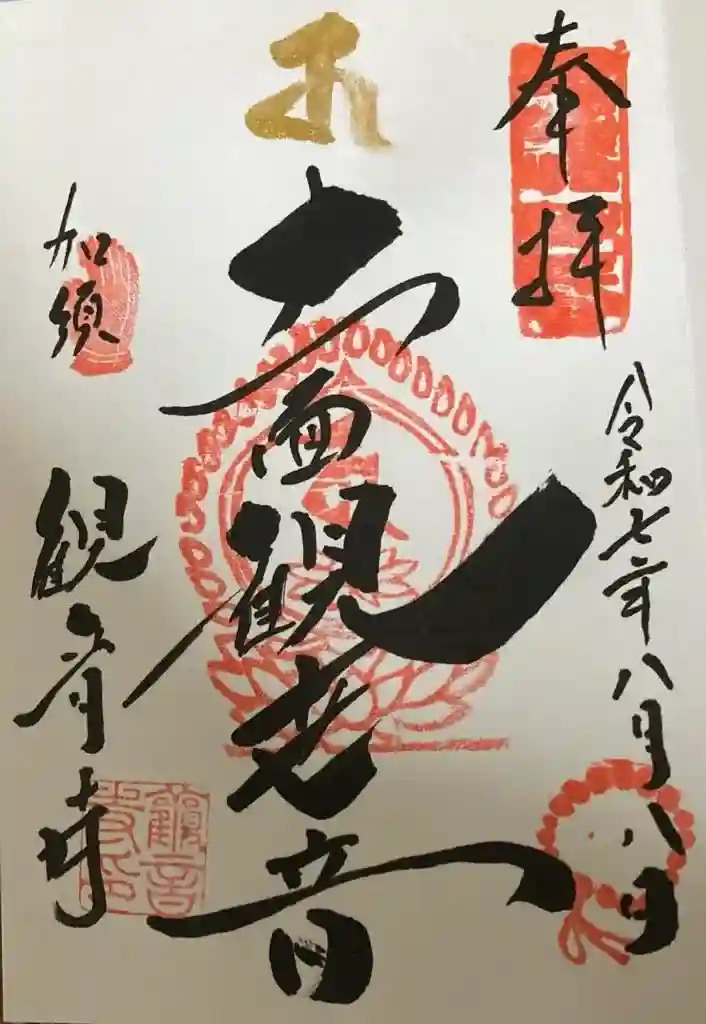 奉拝
令和七年八月八日
十一面観世音
加須
観音寺